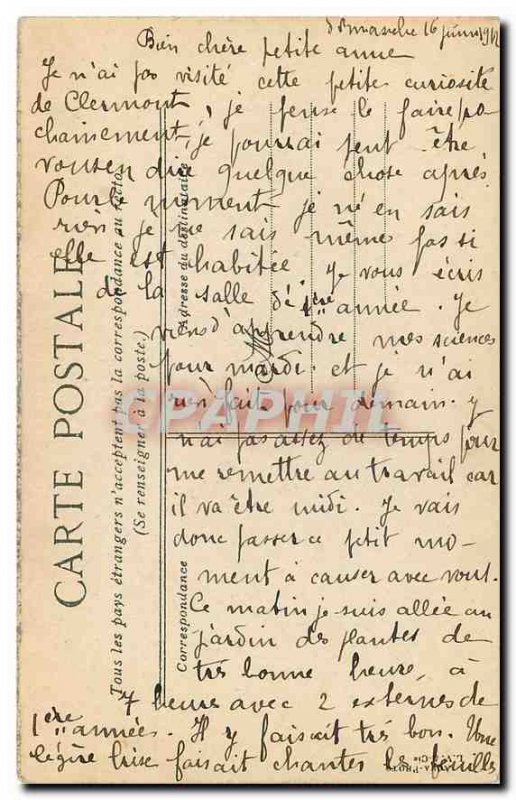 dimanche 16 juin 1912
Bien chère petite amie
Je n'ai pas visité cette petite curiosité
de Clermont, je pense le faire pro
chainement, je pourrai peut être
vous en dire quelque chose après.
Pour le moment je n'en sais
rien je ne sais même pas si
elle est habitée. Je vous écris
de la salle de 1ère année. Je
viens d'apprendre mes sciences
pour mardi. et je n'ai
rien fait pour demain. Je
n'ai pas assez de temps pour
me remettre au travail car
il va être midi. Je vais
donc passer ce petit mo-
ment à causer avec vous.
Ce matin je suis allée au
jardin des plantes de
très bonne heure, à
7 heures avec 2 externes de
1ère années. Il y faisait très bon. Une
légère brise faisait chanter les feuilles
CARTE POSTALE
Tous les pays étrangers n'acceptent pas la correspondance au recto.
(Se renseigner à la poste.)
Correspondance
Adresse du destinataire
M
CPAPHIL